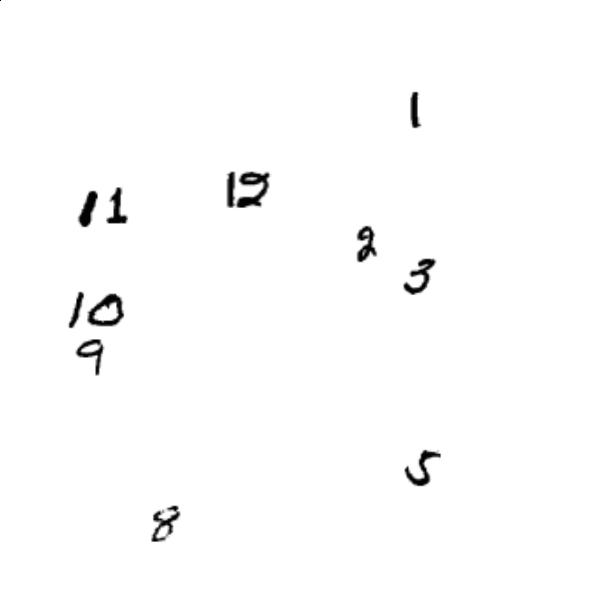 1
12
11
2
3
10
9
5
8